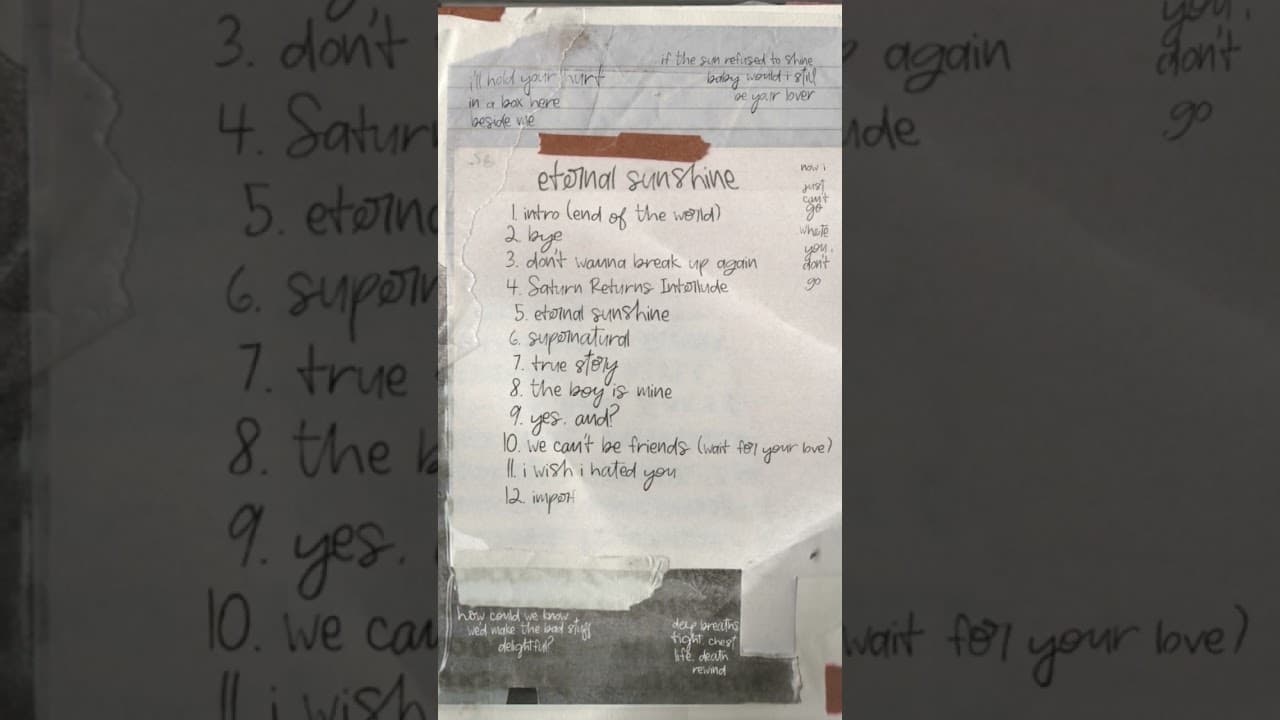 i'll hold your hurt
in a box here
beside me
if the sun refused to shine
baby would i still
be your lover
eternal sunshine
1. intro (end of the world)
2. bye
3. don't wanna break up again
4. Saturn Returns Interlude
5. eternal sunshine
6. supernatural
7. true story
8. the boy is mine
9. yes, and?
10. we can't be friends (wait for your love)
11. i wish i hated you
12. imper
now i
just
can't
go
where
you
don't
go
how could we know
we'd make the bad stuff
delightful?
deep breaths
tight chest
life, death
rewind
3. don't
4. Saturn
5. eterna
6. supern
7. true
8. the b
9. yes,
10. we can
11. i wish
again
lude
wait for your love)
you,
don't
go